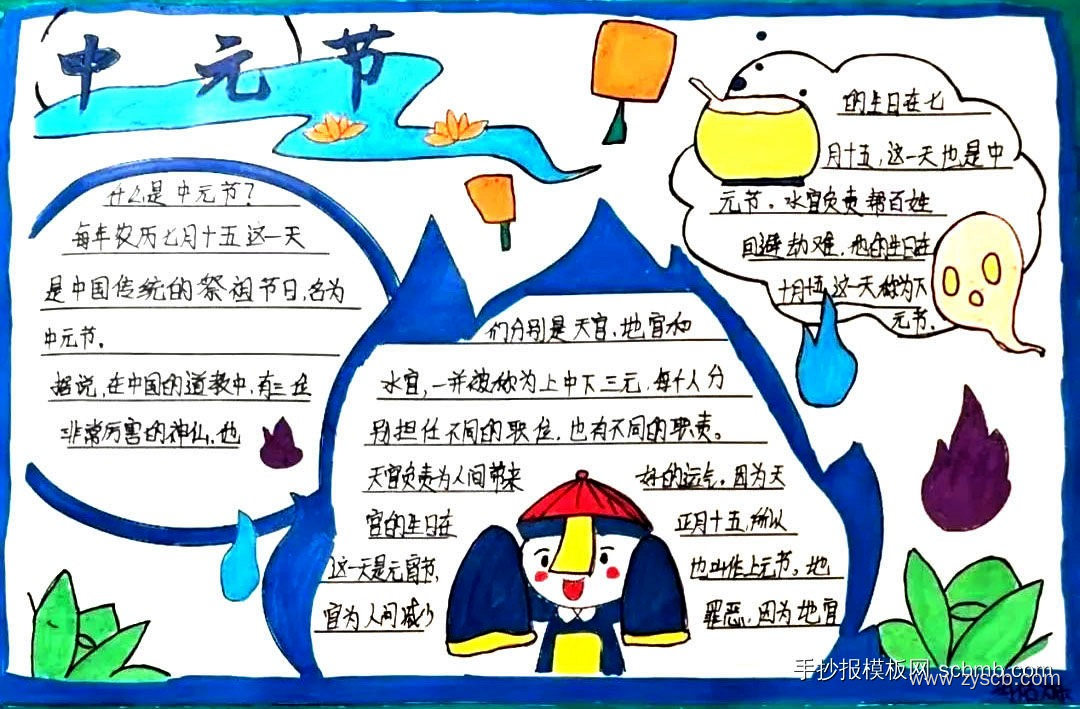 中元节
什么是中元节?
每年农历七月十五这一天
是中国传统的祭祖节日,名为
中元节。
据说,在中国的道教中,有三位
非常厉害的神仙,他
们分别是天官,地官和
水官,一并被称为上中下三元,每个人分
别担任不同的职位,也有不同的职责。
天官负责为人间带来 好的运气,因为天
官的生日在 正月十五,所以
这一天是元宵节, 也叫作上元节。地
官为人间减少 罪恶,因为地官
的生日在七
月十五,这一天也是中
元节。水官负责帮百姓
回避劫难,他的生日在
十月十五,这一天做为下
元节。
手抄报模板网 scbmb.com
www.zyscb.com